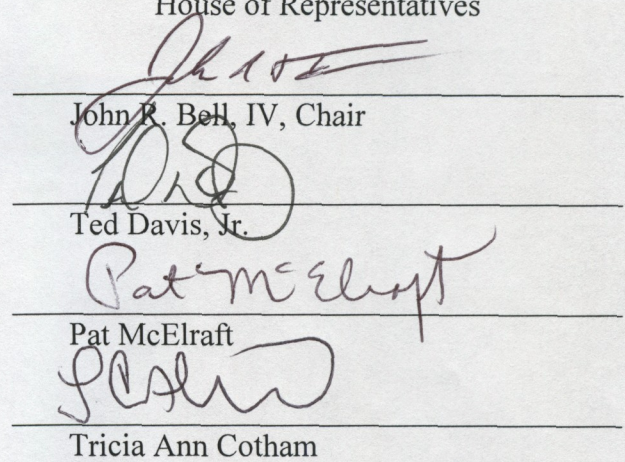 House of Representatives
John R. Bell, IV, Chair
Ted Davis, Jr.
Pat McElraft
Pat McElraft
Tricia Ann Cotham